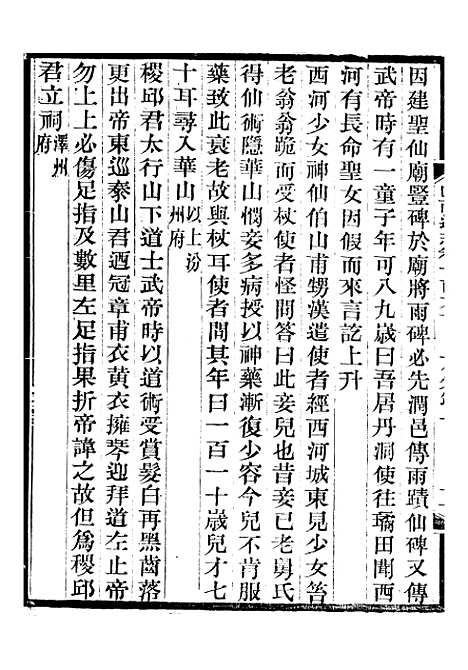 因建聖仙廟豎碑於廟將雨碑必先潤邑傳雨蹟仙碑又傳
武帝時有一童子年可八九歲曰吾居丹洞使往璚田聞西
河有長命聖女因假言訖上升
西河少女神仙伯山甫甥漢遣使者經西河城東見少女笞
老翁翁跪而受杖使者怪問答曰此妾兒也昔妾已老舅氏
得仙術隱華山憫妾多病授以神藥漸復少容今兒不肯服
藥致此衰老故與杖耳使者問其年曰一百一十歲兒才七
十耳尋入華山以上汾州府
稷邱君太行山下道士武帝時以道術受賞髮白再黑齒落
更出帝東巡泰山君迺冠章甫衣黃衣擁琴迎拜道左止帝
勿上上必傷足指及數里左足指果折帝諱之故但為稷邱
君立祠澤州府